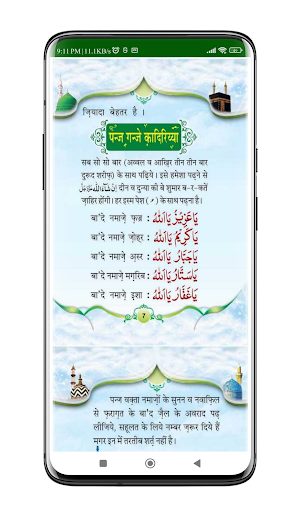 9:11 PM | 11.1KB/s
ज़ियादा बेहतर है ।
पन्ज गन्जे क़ादिरिय्या
सब सो सो बार (अव्वल व आख़िर तीन तीन बार
दुरूद शरीफ़) के साथ पढ़िये । इसे हमेशा पढ़ने से
اِنْ شَآءَاللّٰه दीन व दुन्या की बे शुमार ब-र-कतें
ज़ाहिर होंगी। हर इस्म पेश ( ُ ) के साथ पढ़ना है।
बा'दे नमाज़े फ़ज्र : يَاعَزِيْزُ يَااَللّٰهُ
बा'दे नमाज़े ज़ोहर : يَاكَرِيْمُ يَااَللّٰهُ
बा'दे नमाज़े अ़सर : يَاجَبَّارُ يَااَللّٰهُ
बा'दे नमाज़े मग़रिब : يَاسَتَّارُ يَااَللّٰهُ
बा'दे नमाज़े इशा : يَاغَفَّارُ يَااَللّٰهُ
7
पन्ज वक़्ता नमाज़ों के सुनन व नवाफ़िल
से फ़राग़त के बा'द ज़ैल के अवराद पढ़
लीजिये, सहूलत के लिये नम्बर ज़रूर दिये हैं
मगर इन में तरतीब शर्त़ नहीं है।